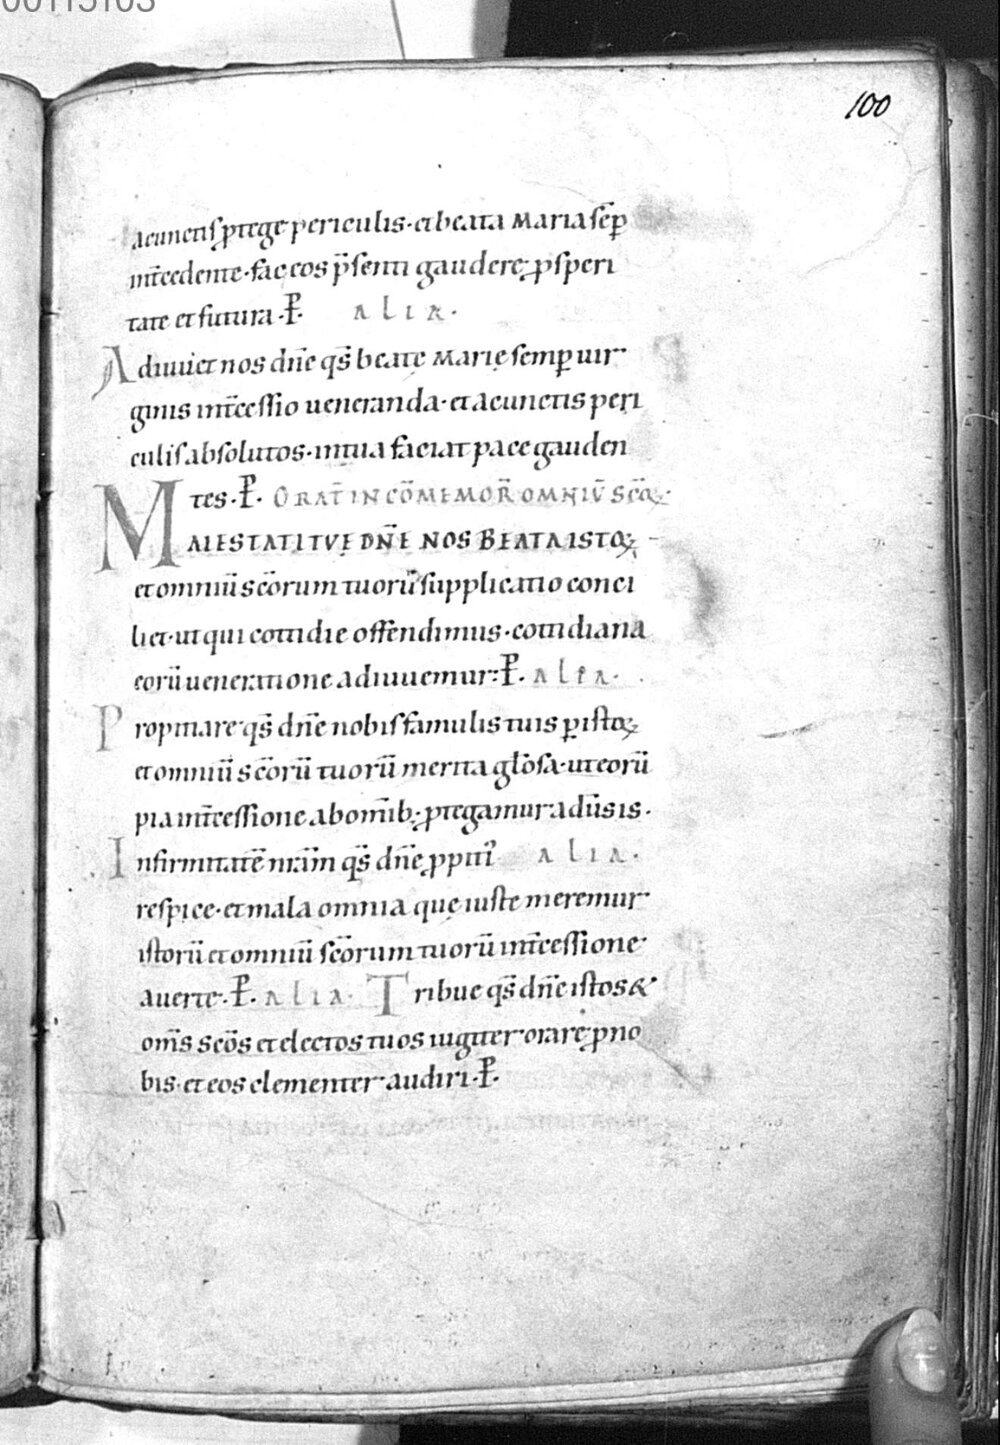 00115103
100
acunctis ꝓtege periculis · et beata maria sēp
int̄cedente · fac eos p̄senti gaudere ꝓsperi
tate et futura · P̄. ALIA.
Adiuuet nos dn̄e qs̄ beatę marię semꝑ uir
ginis int̄cessio ueneranda · et acunctis peri
culis absolutos · intua faciat pace gauden
tes · P̄. ORAT̄ IN COM̄EMOR̄ OMNIŪ SCŌꝜ ·
MAIESTATI TVĘ DN̄E NOS BEATA ISTOꝜ
et omniū scōrum tuorū supplicatio conci
liet · ut qui cottidie offendimus · cottidiana
eorū ueneratione adiuuemur : P̄. ALIA.
Propitiare qs̄ dn̄e nobis famulis tuis ꝑ istoꝝ
et omniū scōrū tuorū merita glōsa · ut eorū
pia int̄cessione abom̄ib; ꝓtegamur aduīsis ·
Infirmitatē nrām qs̄ dn̄e ꝓpiti᾽ ALIA.
respice · et mala omnia quę iuste meremur
istorū et omniū scōrum tuorū int̄cessione
auerte · P̄. ALIA. Tribue qs̄ dn̄e istos &
om̄s scōs et electos tuos iugiter orare ꝓ no
bis · et eos clementer audiri · P̄.